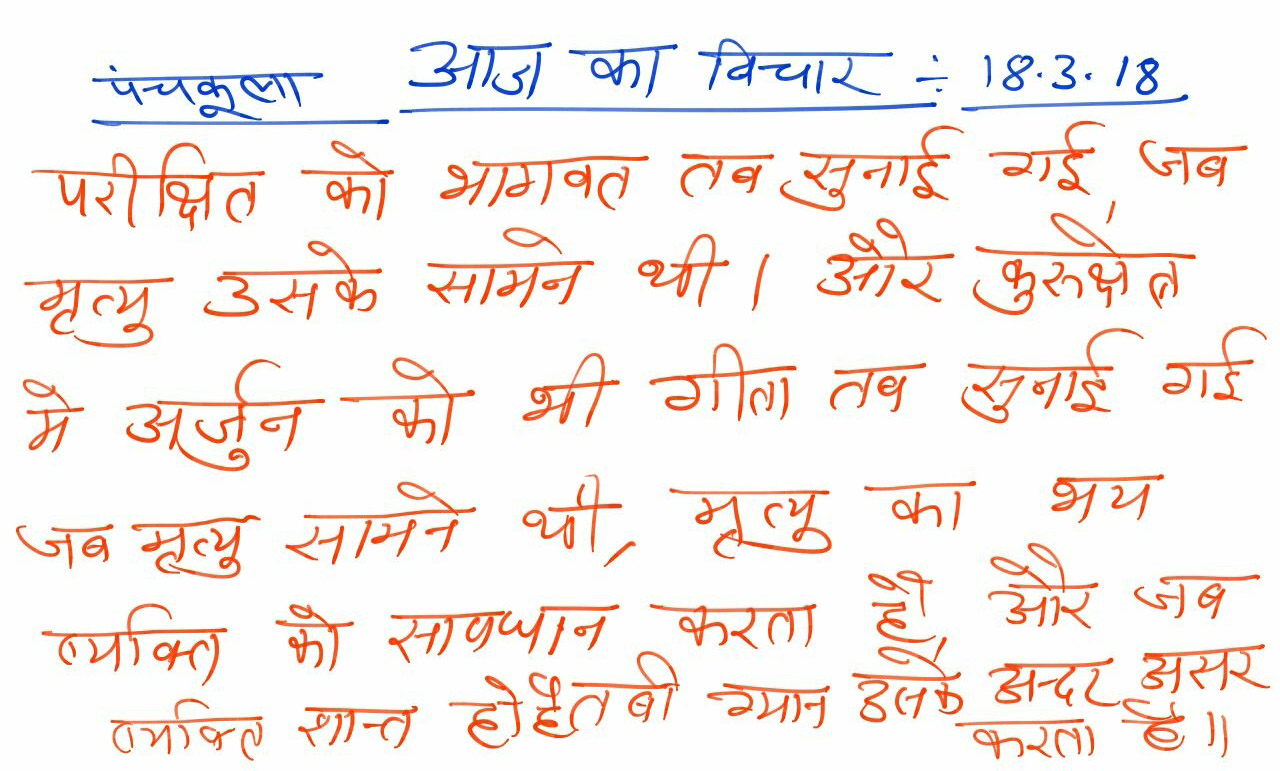 पंचकूला आज का विचार ÷ 18.3.18
परीक्षित को भागवत तब सुनाई गई, जब
मृत्यु उसके सामने थी। और कुरुक्षेत्र
मे अर्जुन को भी गीता तब सुनाई गई
जब मृत्यु सामने थी, मृत्यु का भय
व्यक्ति को सावधान करता है, और जब
व्यक्ति शान्त हो है तबी ग्यान उसके अन्दर असर
करता है॥